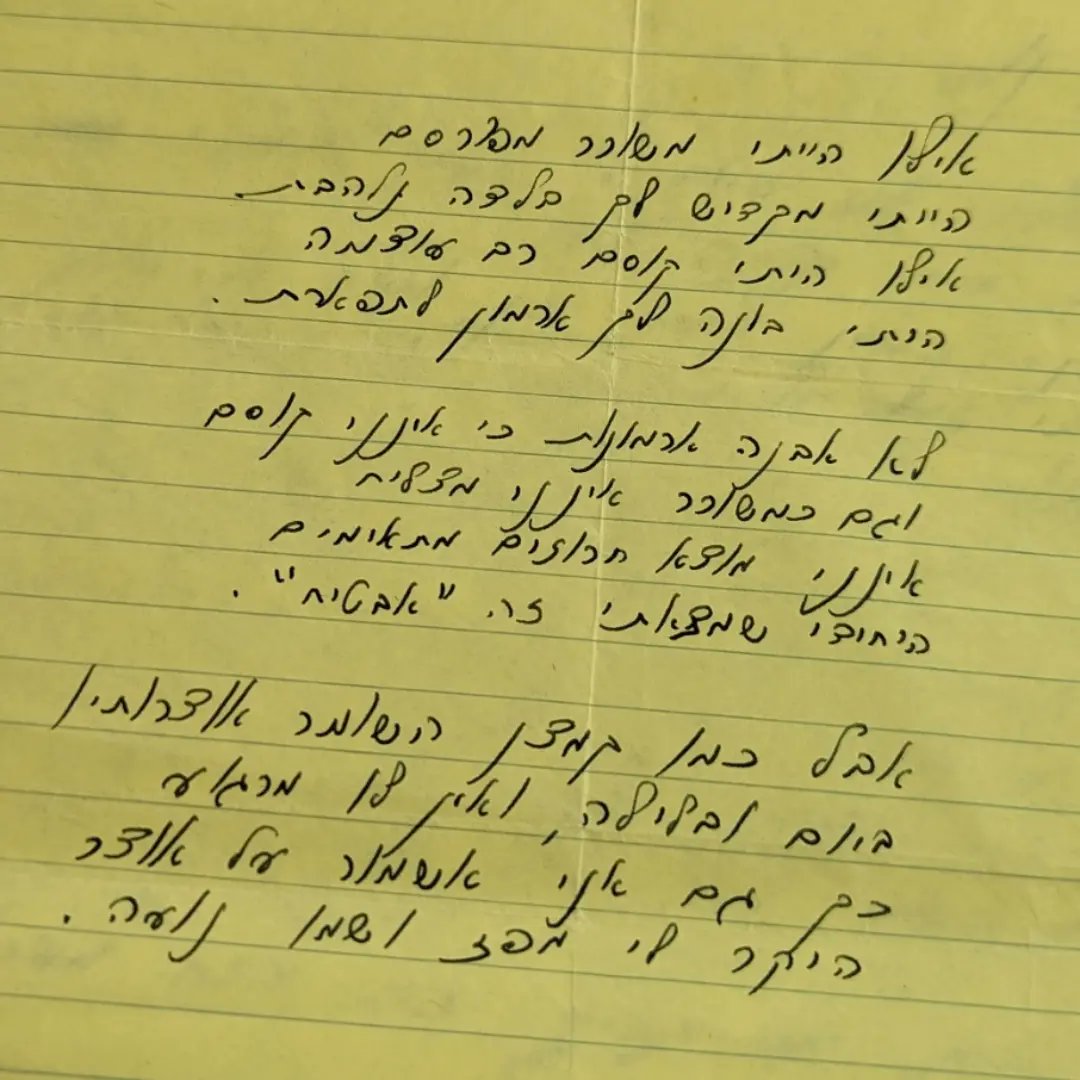 אילו הייתי משורר מפורסם
הייתי מקדיש לך בלדה נלהבת.
אילו היתי קוסם רב עוצמה
היתי בונה לך ארמון לתפארת.
לא אבנה ארמונות כי אינני קוסם
וגם כמשורר אינני מצליח
אינני מוצא חרוזים מתאימים
היחידי שמצאתי זה "אבטיח".
אבל כמו קמצן השומר אוצרותיו
ביום ובלילה, ואין לו מרגוע
כך גם אני אשמור על אוצר
היקר לי מפז ושמו נועה.